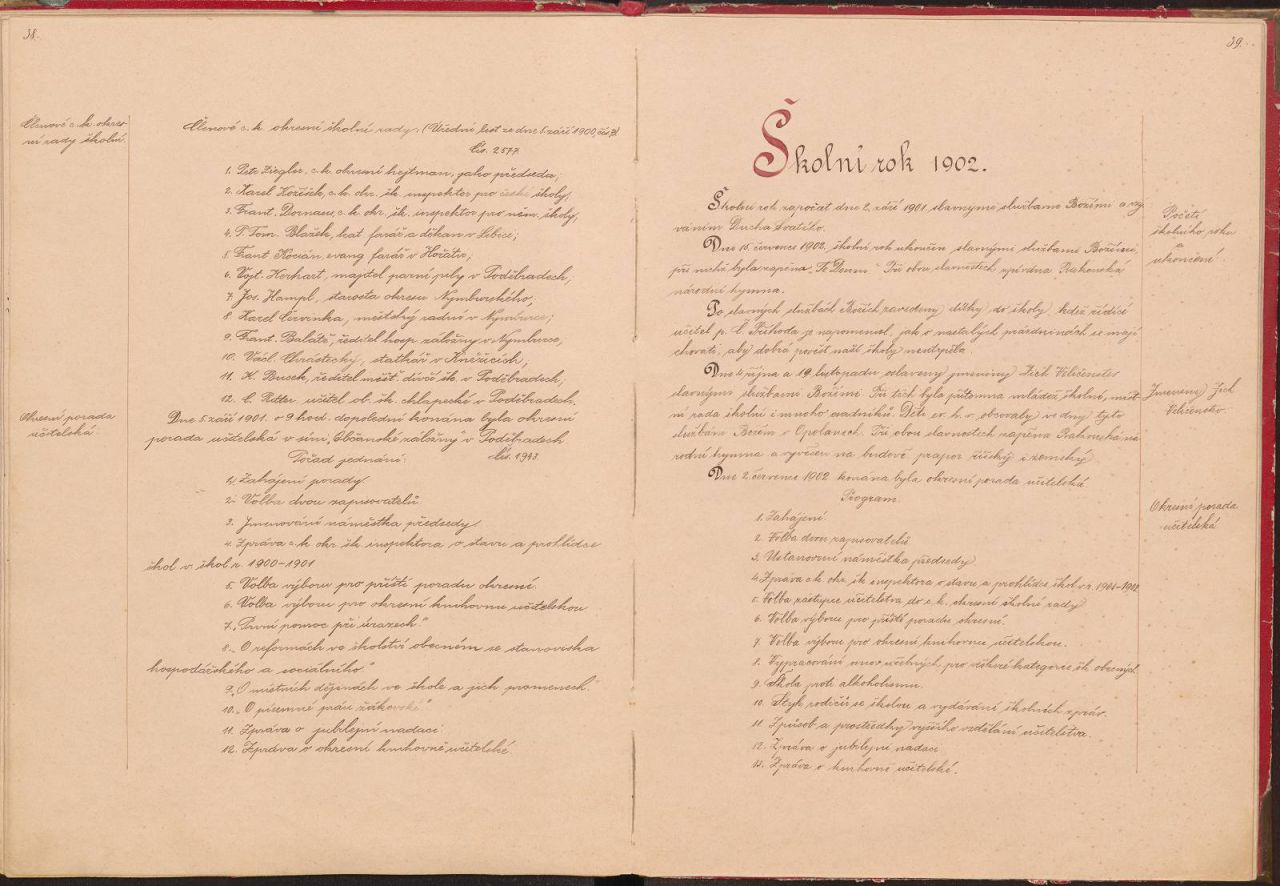 38.
Členové c. k. okres-
ní rady školní.
Členové c. k. okresní školní rady. (Úřední list ze dne 5. září 1900, čís.
čís. 2577.
1. Petr Ziegler, c. k. okresní hejtman, jako předseda;
2. Karel Kožíšek, c. k. okr. šk. inspektor pro české školy;
3. Frant. c. k. okr. šk. inspektor pro něm. školy;
4. P. Tom. Blažek, kat. farář a děkan v Libici;
5. Frant. Kocián, evang. farář v Hořátvi;
6. Vojt. Kerhart, majitel parní pily v Poděbradech;
7. Jos. Hampl, starosta okresu Nymburského;
8. Karel Červenka, městský radní v Nymburce;
9. Frant. Balátě, ředitel hosp. záložny v Nymburce,
10. Václ. Chrástecký, statkář v Kněžicích;
11. K. Bucek, ředitel měšť. dívčí šk. v Poděbradech;
12. C. Ritter učitel ob. šk. chlapecké v Poděbradech.
Okresní porada
učitelská.
Dne 5. září 1901. o 9 hod. dopolední konána byla okresní
porada učitelská v síni „Občanské záložny“ v Poděbradech
Pořad jednání: čís. 1943
1. Zahájení porady.
2. Volba dvou zapisovatelů
3. Jmenování náměstka předsedy.
4. Zpráva c. k. okr. šk. inspektora o stavu a prohlídce
škol v škol. r. 1900-1901
5. Volba výboru pro příští poradu okresní.
6. Volba výboru pro okresní knihovnu učitelskou
7. „První pomoc při úrazech“
8. „O reformách ve školství obecném se stanoviska
hospodářského a sociálního“
9. „O místních dějinách ve škole a jich
10. „O písemné práci žákovské“
11. Zpráva o jubilejní nadaci
12. Zpráva o okresní knihovně učitelské.
39.
Školní rok 1902.
Školní rok započat dne 2. září 1901 slavnými službami Božími a vzý-
váním Ducha Svatého.
Počátek
školního roku
a
ukončení.
Dne 15. července 1902. školní rok ukončen slavnými službami Božími,
při nichž byla zapěna „Te Deum“ Při obou slavnostech zpívána Rakouská
národní hymna.
Po slavných službách Božích zavedeny dítky do školy, kdež řídící
učitel p. Č. Příhoda je napomenul, jak o nastalých prázdninách se mají
chovati, aby dobrá pověst naší školy neutrpěla.
Dne 4. října a 19. listopadu oslaveny jmeniny Jich Veličenstev
slavnými službami Božími. Při těch byla přítomna mládež školní, míst-
ní rada školní i mnoho osadníků. Děti ev. h. v. obcovaly ve dny tyto
službám Božím v Opolanech. Při obou slavnostech zapěna Rakouská ná-
rodní hymna a vyvěšen na budově prapor říšský i zemský.
Jmeniny Jich
Veličenstev.
Dne 2. července 1902 konána byla okresní porada učitelská
Okresní porada
učitelská
Program.
1. Zahájení.
2. Volba dvou zapisovatelů
3. Ustanovení náměstka předsedy.
4. Zpráva c. k. okr. šk. inspektora o stavu a prohlídce škol v r. 1901-1902.
5. Volba zástupce učitelstva do c. k. okresní školní rady
6. Volba výboru pro příští poradu okresní.
7. Volba výboru pro okresní knihovnu učitelskou.
8. Vypracování osnov učebných pro kategorie šk. obecných.
9. Škola proti alkoholismu.
10. Styk rodičů se školou a vydávání školních zpráv.
11. Způsob a prostředky vyššího vzdělání učitelstva.
12. Zpráva o jubilejní nadaci
13. Zpráva o knihovně učitelské.